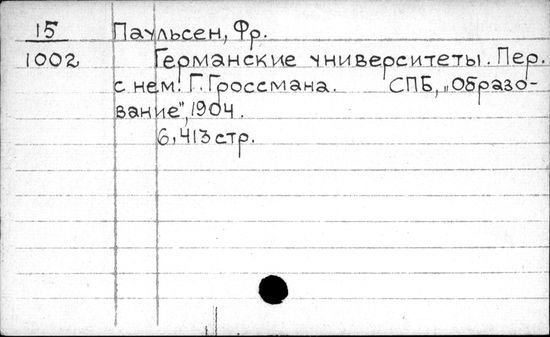 15 Паульсен, Фр.
1002 Германские университеты. Пер.
с нем. Г. Гроссмана. СПБ, „Образо-
вание", 1904.
6, 413 стр.